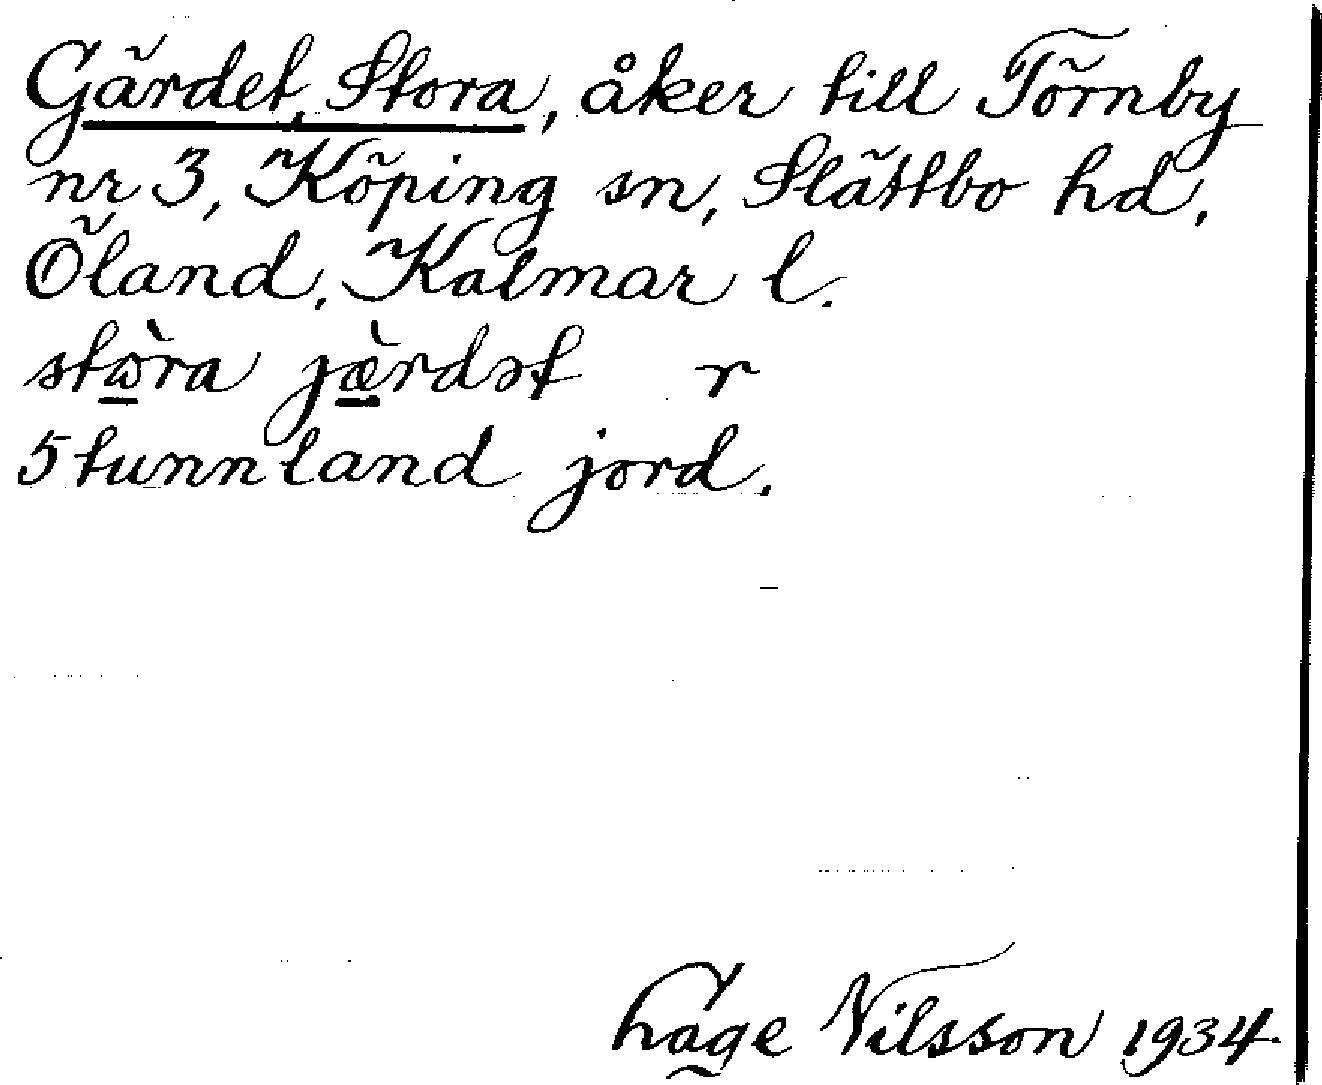 Gärdet, Stora, åker till Törnby
nr 3, Köping sn, Slättbo hd,
Öland, Kalmar l.
stɷ̀ra jæ̀rdət r
5 tunnland jord.
Håge Nilsson 1934.